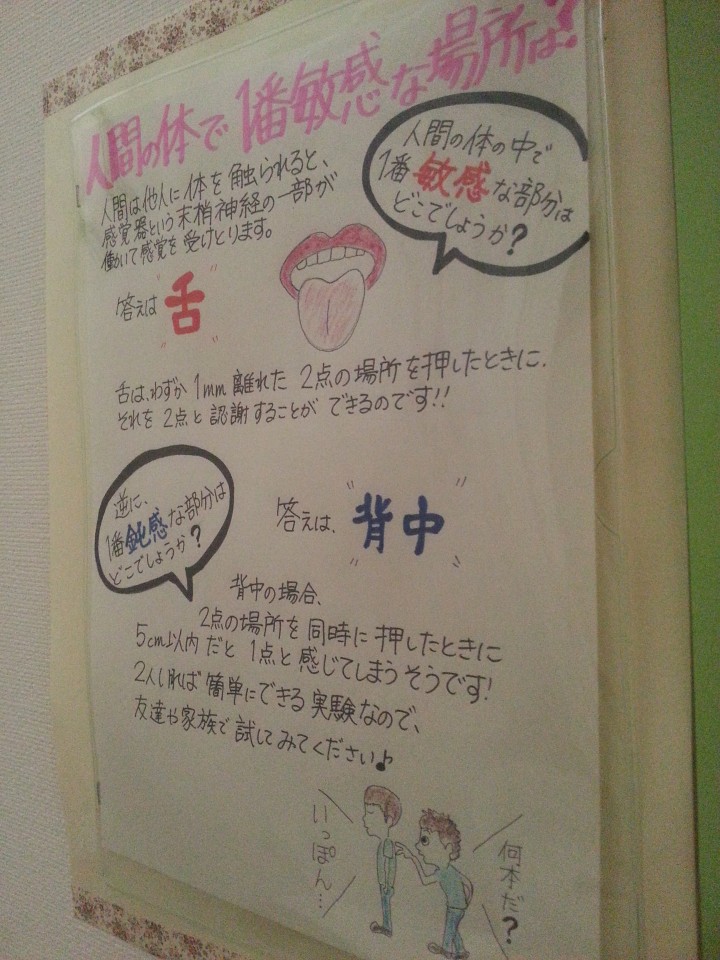 人間の体で1番敏感な場所は?
人間の体の中で
1番敏感な部分は
どこでしょうか?
人間は他人に体を触られると、
感覚器という末梢神経の一部が
働いて感覚を受けとります。
答えは"舌"
舌は、わずか1mm離れた2点の場所を押したときに、
それを2点と認謝することができるのです!!
逆に、
1番鈍感な部分は
どこでしょうか?
答えは、"背中"
背中の場合、
2点の場所を同時に押したときに
5cm以内だと1点と感じてしまうそうです!
2人いれば簡単にできる実験なので、
友達や家族で試してみてください♪
いっぽん…
何本だ?